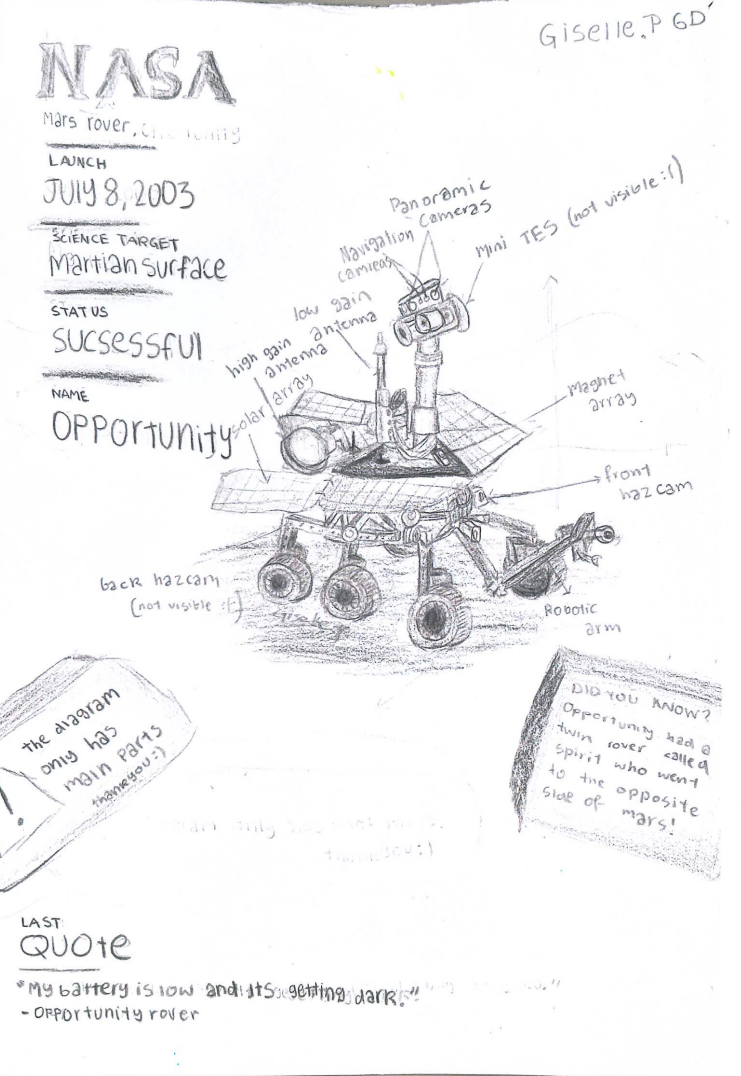 Giselle.P 6D
NASA
Mars rover,
LAUNCH
JUly 8, 2003
SCIENCE TARGET
Martian surface
STATUS
sucsessful
NAME
OPPOrtunity
Panoramic
cameras
Navigation
camreas
Mini TES (not visible :()
low gain
antenna
high gain
antenna
solar array
Magnet
array
front
hazcam
back hazcam
(not visible :()
Robotic
arm
the diagram
only has
main parts
thankyou :)
!
DID YOU KNOW?
Opportunity had a
twin rover called
spirit who went
to the opposite
side of mars!
LAST
QUOte
"My battery is low and its getting dark."
- OPPOrtunity rover